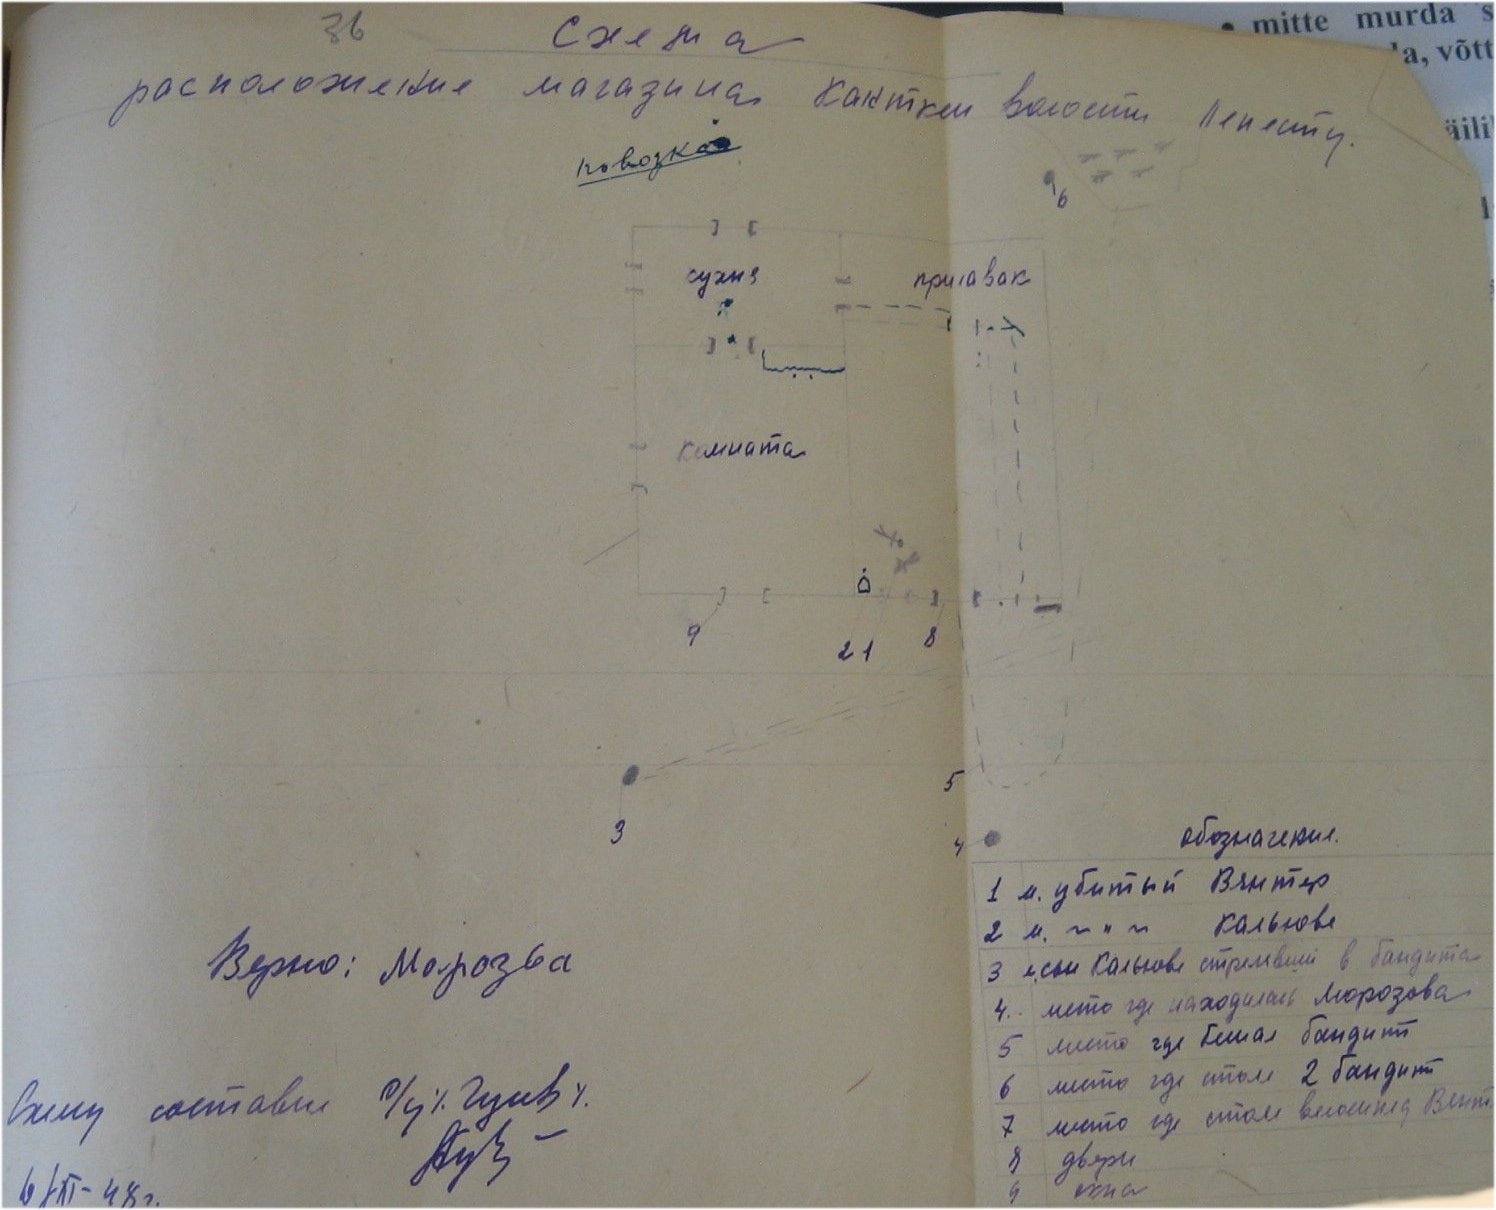 36
Схема
расположение магазина Какткеи волости Пенесту.
• mitte murda s
la, võtt
äili
повозка
6
кухня
прилавак
комната
9
2 1
8
3
5
4
обозначение.
1 м. убитый Вянтер
2 м. ~ " ~ Кальюве
3 м. сын Кальюве стрелявший в бандита
4.. место где находилась Морозова
5 место где бежал бандит
6 место где стоял 2 бандит
7 место где стоял велосипед Вянт
8 двери
9 окна
Верно: Морозва
Схему составил
6/XI-48г.